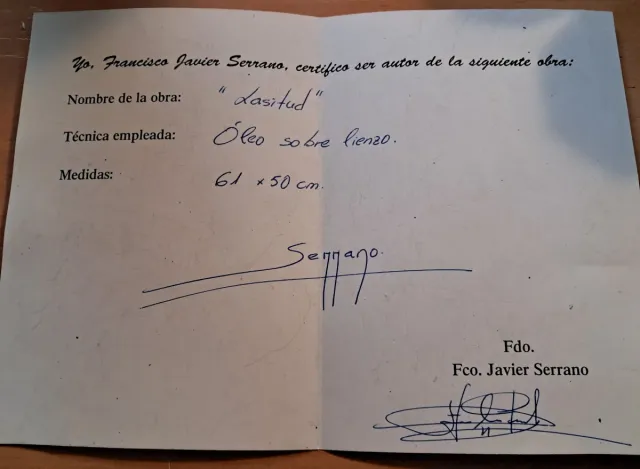 Yo, Francisco Javier Serrano, certifico ser autor de la siguiente obra:
Nombre de la obra: "Lasitud"
Técnica empleada: Óleo sobre lienzo.
Medidas: 61 x 50 cm.
Serrano.
Fdo.
Fco. Javier Serrano